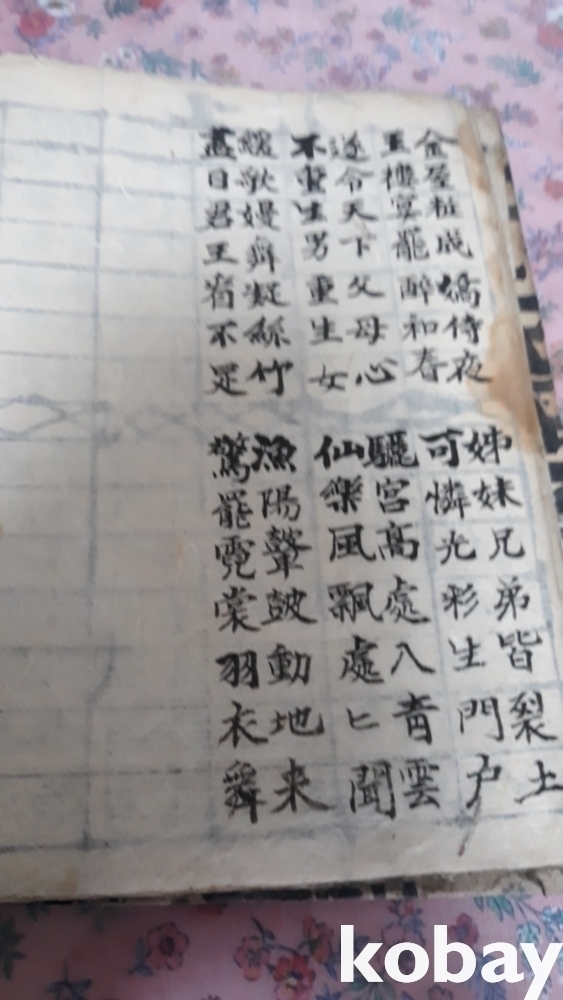 金屋粧成嬌侍夜
玉樓宴罷醉和春
姊妹兄弟皆裂土
可憐光彩生門户
遂令天下父母心
不重生男重生女
驪宮高處入青雲
仙樂風飄處匕聞
緩歌嫚舞凝絲竹
盡日君王看不足
漁陽鼙皷動地来
驚罷霓裳羽衣舞
kobay